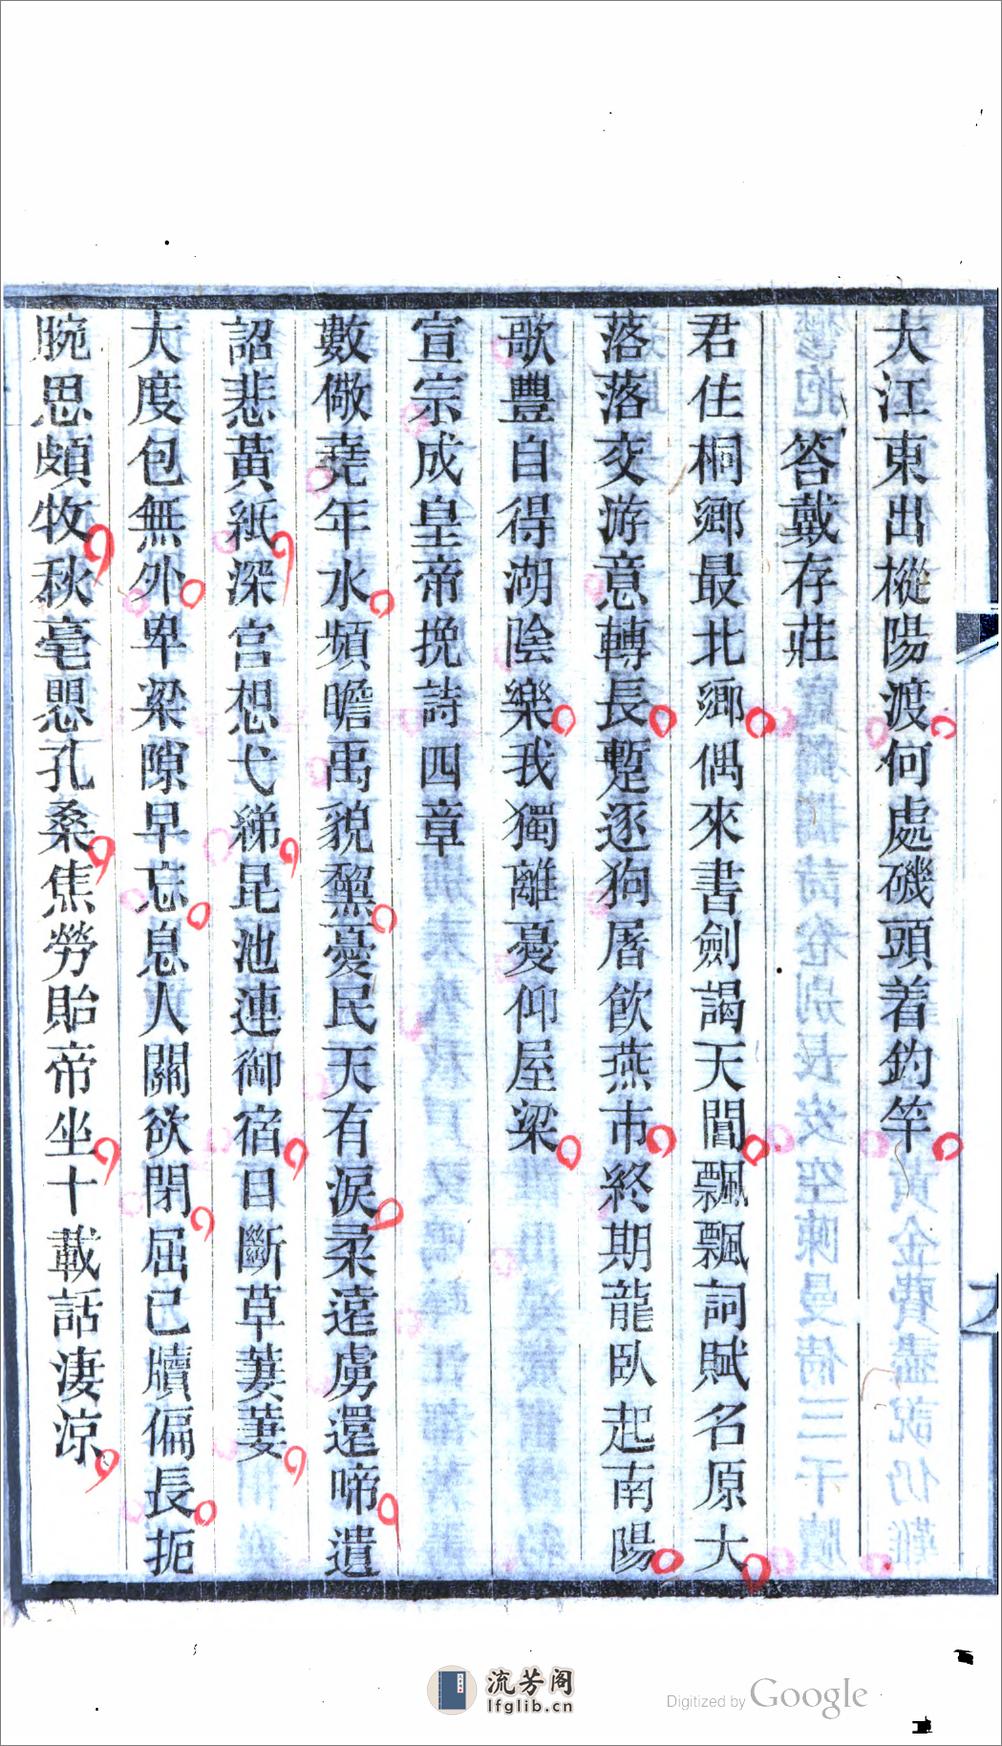 大江東出樅陽渡何處磯頭着釣竿
答戴存莊
君住桐鄉最北鄉偶來書劍謁天閶飄飄詞賦名原大
落落交游意轉長蹔逐狗屠飲燕市終期龍臥起南陽
歌豐自得湖陰樂我獨離憂仰屋梁
宣宗成皇帝挽詩四章
數儆堯年水頻瞻禹貌黧憂民天有淚柔遠虜還啼遺
詔悲黃紙深宮想弋綈昆池連御宿目斷草萋萋
大度包無外卑梁隙早忘息人關欲閉屈己牘偏長扼
腕思頗牧秋毫愳孔桑焦勞貽帝坐十載話淒涼
流芳阁
lfglib.cn
Digitized by Google